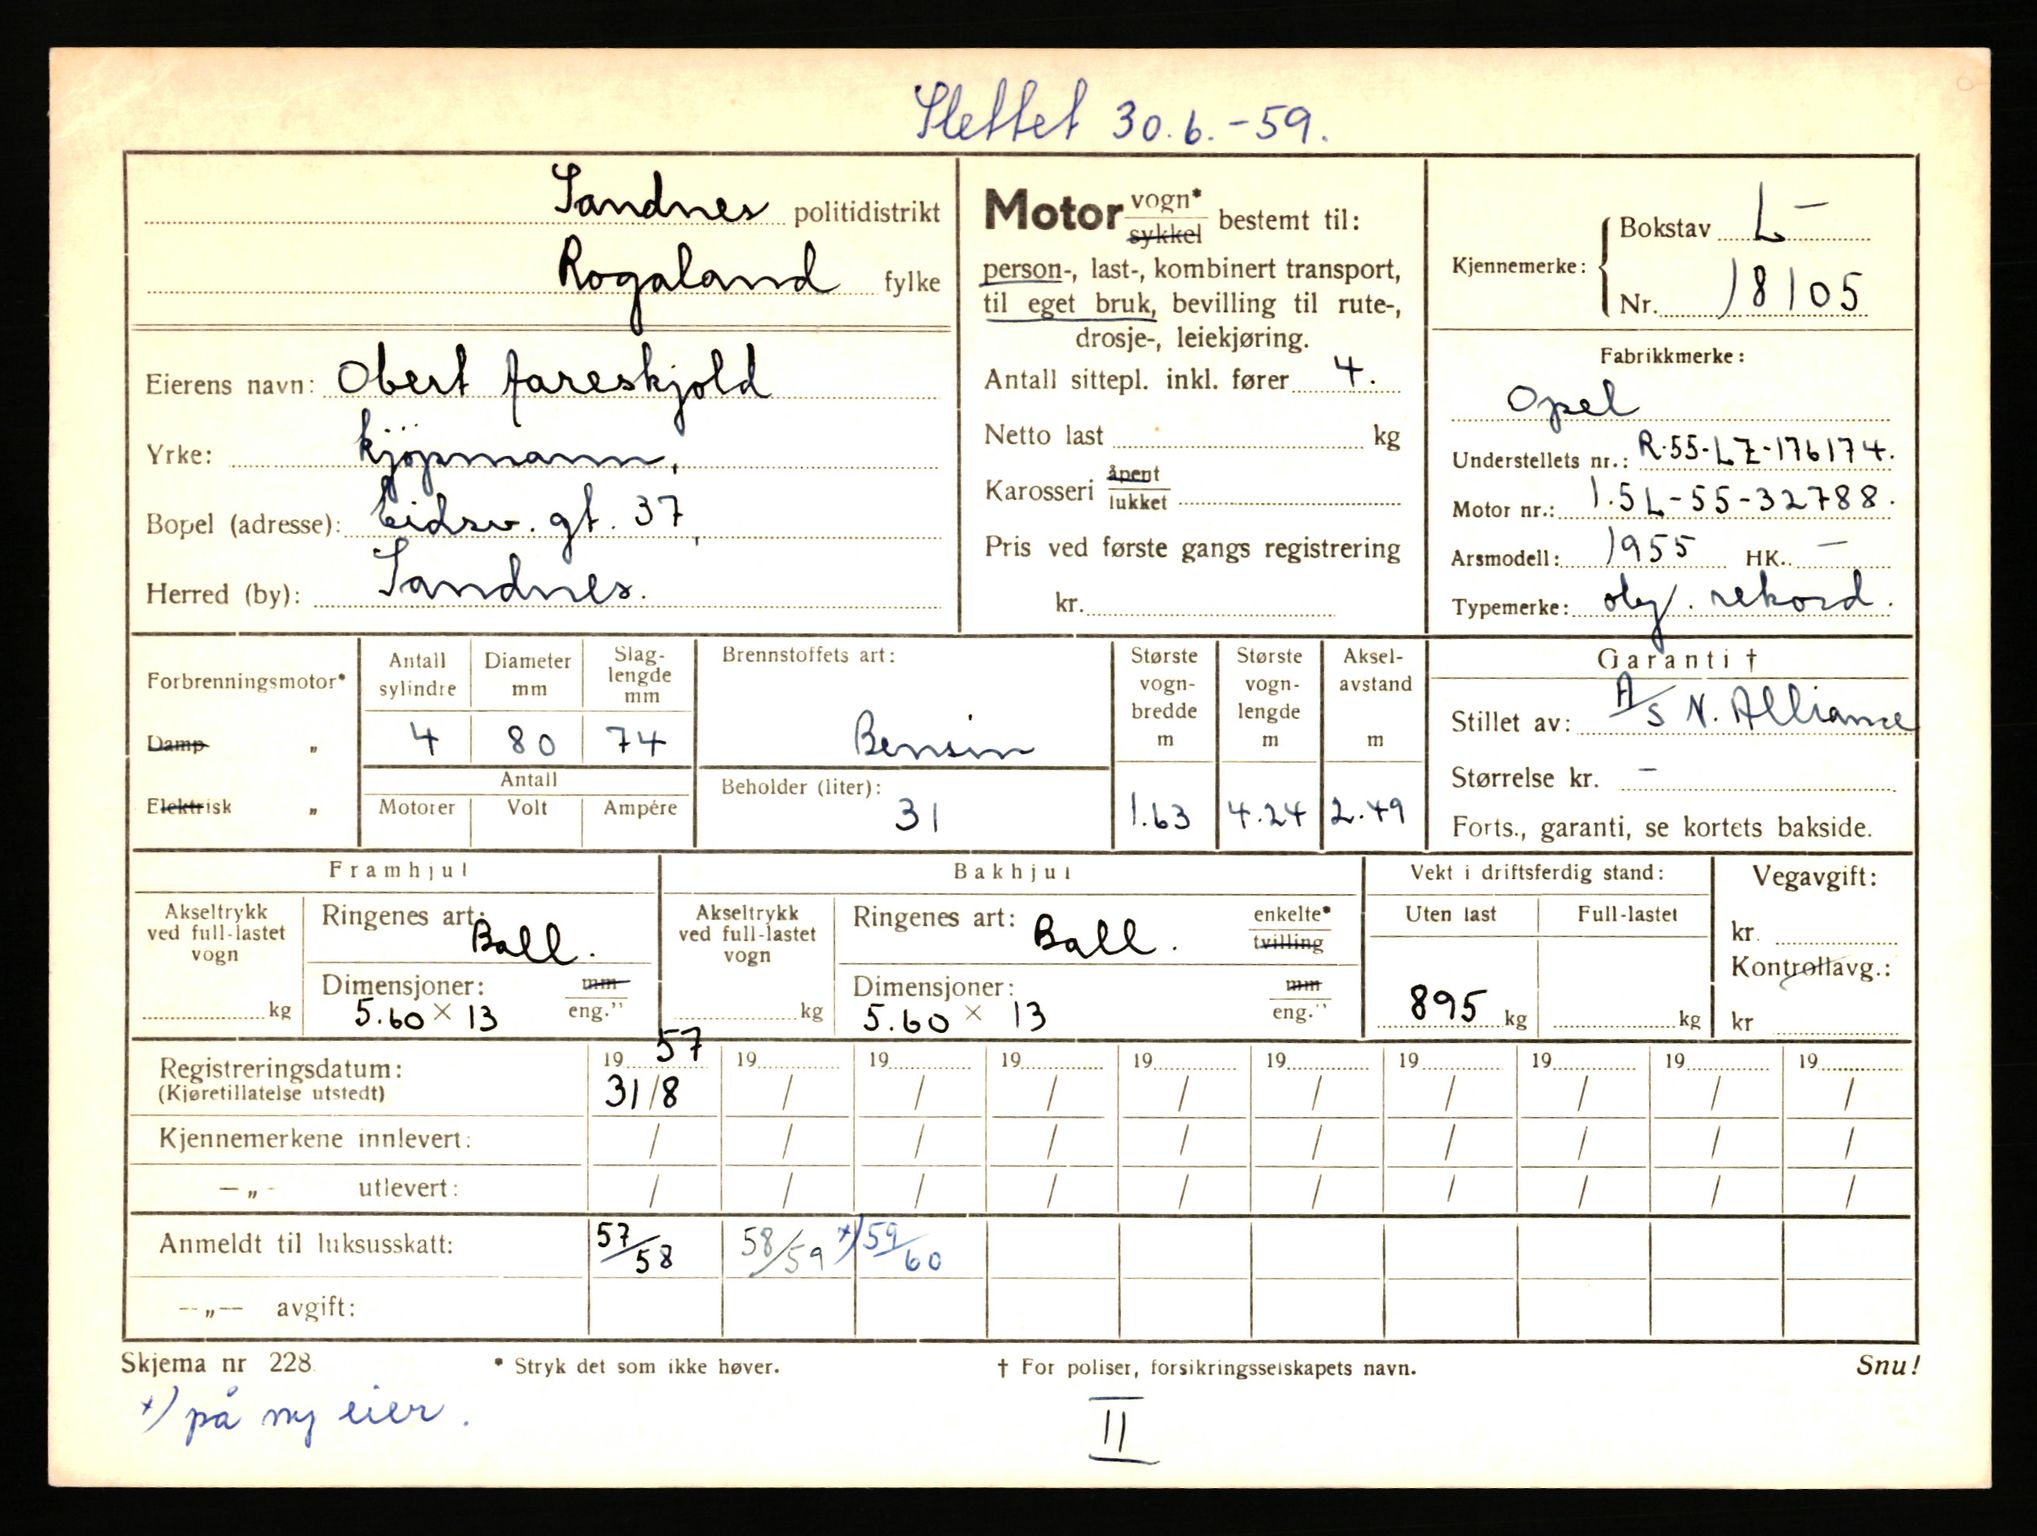 Slettet 30.6.-59.
Sandnes politidistrikt
Rogaland fylke
Eierens navn: Obert Aareskjold
Yrke: kjøpmann,
Bopel (adresse): Eidsv. gt. 37,
Herred (by): Sandnes.
Motor vogn* sykkel bestemt til:
person-, last-, kombinert transport,
til eget bruk, bevilling til rute-,
drosje-, leiekjøring.
Antall sittepl. inkl. fører 4.
Netto last kg
Karosseri åpent lukket
Pris ved første gangs registrering
kr.
Kjennemerke: Bokstav L-
Nr. 18105
Fabrikkmerke:
Opel
Understellets nr.: R-55-LZ-176174.
Motor nr.: 1.5L-55-32788.
Arsmodell: 1955 HK. -
Typemerke: oly. rekord.
Forbrenningsmotor*
Damp "
Elektrisk "
Antall sylindre Diameter mm Slag-lengde mm
4 80 74
Antall
Motorer Volt Ampére
Brennstoffets art:
Bensin
Beholder (liter):
31
Største vogn-bredde m Største vogn-lengde m Aksel-avstand m
1.63 4.24 2.49
Garanti †
Stillet av: A/S N. Alliance
Størrelse kr. -
Forts., garanti, se kortets bakside.
Framhjul
Akseltrykk ved full-lastet vogn
kg
Ringenes art: Ball.
Dimensjoner: mm eng."
5.60 × 13
Bakhjul
Akseltrykk ved full-lastet vogn
kg
Ringenes art: Ball. enkelte* tvilling
Dimensjoner: mm eng."
5.60 × 13
Vekt i driftsferdig stand:
Uten last Full-lastet
895 kg kg
Vegavgift:
kr.
Kontrollavg.:
kr
Registreringsdatum: 19 57 19 19 19 19 19 19 19 19 19
(Kjøretillatelse utstedt) 31/8 / / / / / / / / /
Kjennemerkene innlevert: / / / / / / / / / /
—„- utlevert: / / / / / / / / / /
Anmeldt til luksusskatt: 57/58 58/59 x) 59/60
—„— avgift:
Skjema nr 228. * Stryk det som ikke høver. † For poliser, forsikringsselskapets navn. Snu!
x) på ny eier.
II